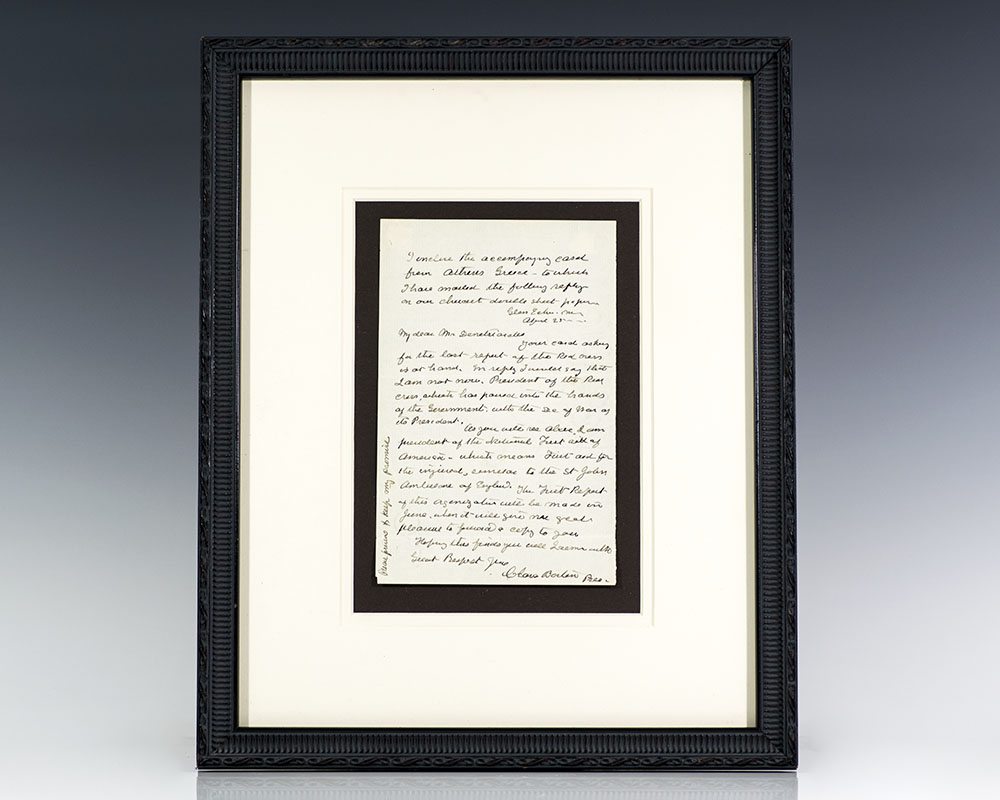 I enclose the accompanying card
from Athens Greece - to which
I have mailed the folling reply
on our cheapest double sheet paper
Glen Echo. Md
April 25
My dear Mr
Your card asking
for the last report of the Red Cross
is at hand. In reply I would say that
I am not now. President of the Red
Cross, which has passed into the hands
of the Government, with the Sec of War as
its President.
As you will see above, I am
president of the National First Aid of
America - which means First aid for
the injured, similar to the St John
Ambulance of England. The First Report
of this organization will be made in
June, when it will give me great
pleasure to forward a copy to you
Hoping this finds you well I am with
Great Respect Yours
Clara Barton Pres.
Please to keep my promise